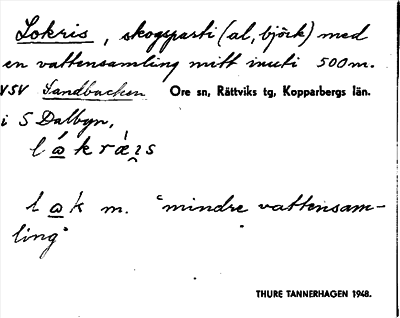 Lokris, skogsparti (al, björk) med
en vattensamling mitt inuti 500m.
VSV Sandbacken Ore sn, Rättviks tg, Kopparbergs län.
i S Dalbyn,
lǻkrǽɪs
lak m. "mindre vattensam-
ling"
THURE TANNERHAGEN 1948.